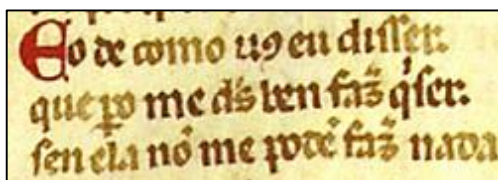 Eo de como uꝯ eu disser.
que ꝑo me ds̃ ben faz̃ qͥser.
sen ela nõ me podẽ faz̃ nada